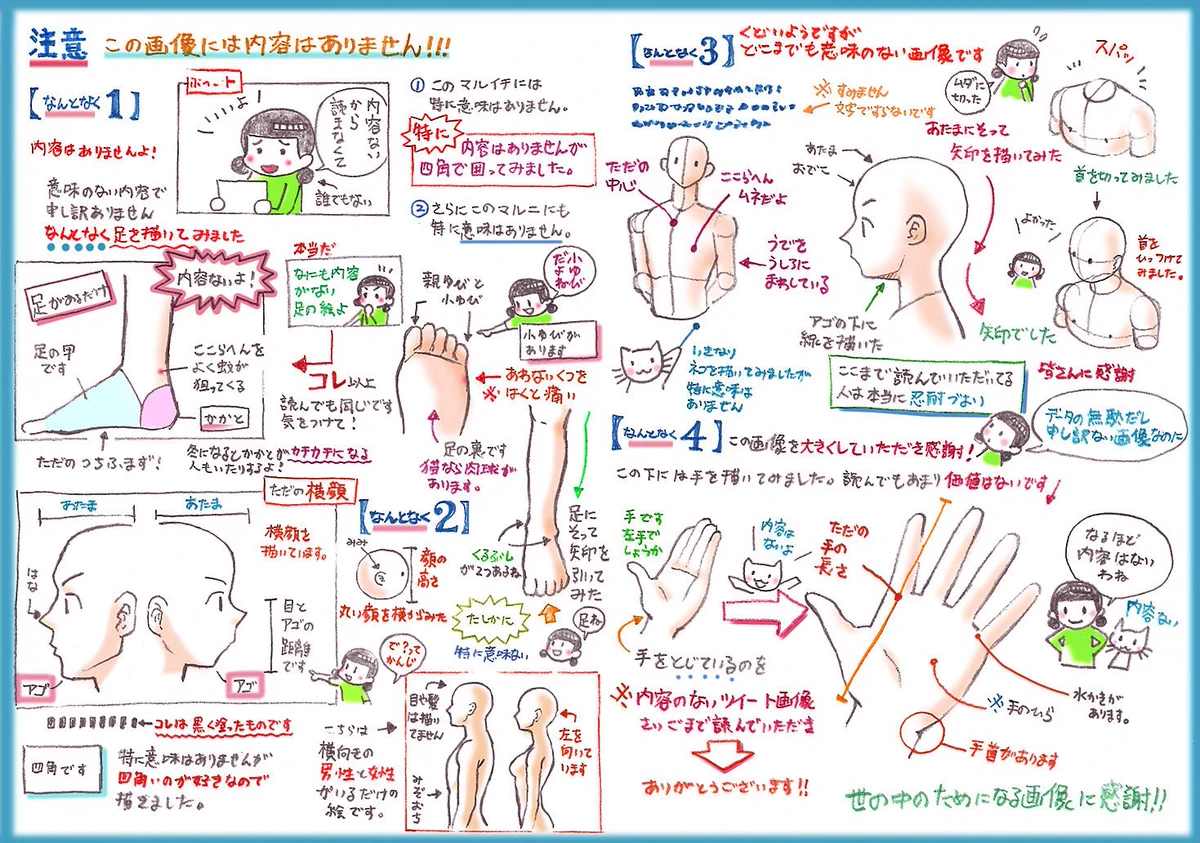 注意 この画像には内容はありません!!!
【なんとなく1】
内容はありませんよ!
意味のない内容で
申し訳ありません
なんとなく足を描いてみました
いいよ!
内容ない
から
読まなくて
誰でもない
① このマルイチには
特に意味はありません。
特に
内容はありませんが
四角で囲ってみました。
② さらにこのマルニにも
特に意味はありません。
足があるだけ
内容ないよ!
足の甲
です
ここらへんを
よく蚊が
狙ってくる
かかと
ただのつちふまず!
本当だ
なにも内容
がない
足の絵よ
コレ以上
読んでも同じです
気をつけて!
冬になるとかかとがカチカチになる
人もいたりするよ!
親ゆびと
小ゆび
小ゆび
だよ
ねぇ
小ゆびが
あります
あわないくつを
※はくと痛い
足の裏です
猫なら肉球が
あります。
ただの横顔
あたま
あたま
横顔を
描いています。
はな
目と
アゴの
距離
です
アゴ
アゴ
コレは黒く塗ったものです
四角です
特に意味はありませんが
四角いのが好きなので
描きました。
【なんとなく2】
みみ
顔の
高さ
丸い顔を横からみた
くるぶし
が2つあるね
足に
そって
矢印を
引いて
みた
たしかに
特に意味ない
足ね
で?って
かんじ
こちらは
横向きの
男性と女性
がいるだけの
絵です。
目や髪
は描い
てません
みぞおち
左を
向いて
います
【なんとなく3】
くどいようですが
どこまでも意味のない画像です
※すみません
文字ですらないです
ムダに
切った
スパッ
首を切ってみました
ただの
中心
ここらへん
ムネだよ
うでを
うしろに
まわしている
あたま
おでこ
あたまにそって
矢印を描いてみた
アゴの下に
線を描いた
矢印でした
よかった
首を
ひっつけて
みました。
いきなり
ネコを描いてみましたが
特に意味は
ありません
ここまで読んでいただいてる
人は本当に忍耐づよい
皆さんに感謝
データの無駄だし
申し訳ない画像なのに
【なんとなく4】
この画像を大きくしていただき感謝!
この下には手を描いてみました。読んでもあまり価値はないです
手です
左手で
しょうか
内容は
ないよ
ただの
手の
長さ
手をとじているのを
なるほど
内容はない
わね
内容ない
水かきが
あります。
※手のひら
手首があります
※内容のないツイート画像
さいごまで読んでいただき
ありがとうございます!!
世の中のためになる画像に感謝!!